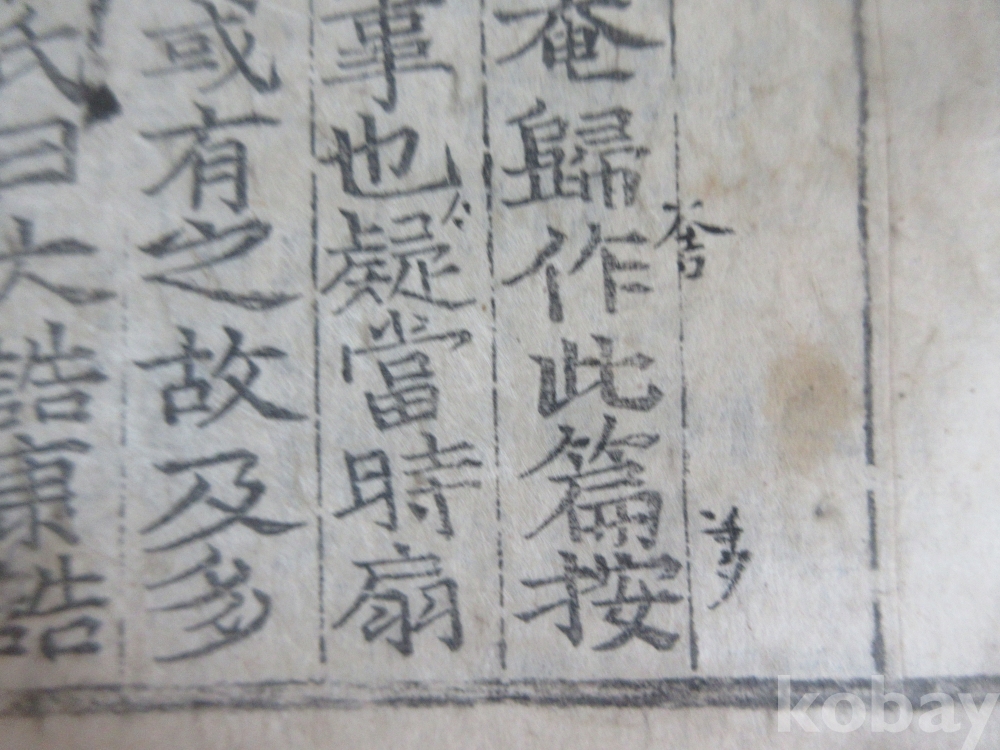 奄歸作此篇按
事也疑當時扇
或有之故及多
氏曰大誥康誥
kobay